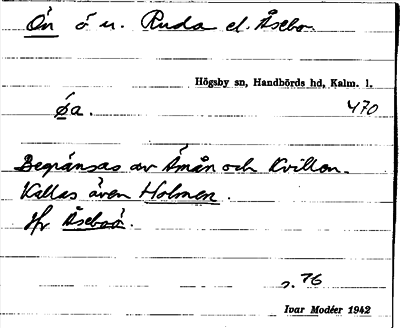 Ön ö u. Ruda el. Åsebo.
Högsby sn, Handbörds hd, Kalm. l.
øa. 470
Begränsas av Åmån och Kvillen.
Kallas även Holmen.
Jfr Åseboö.
s. 76
Ivar Modéer 1942